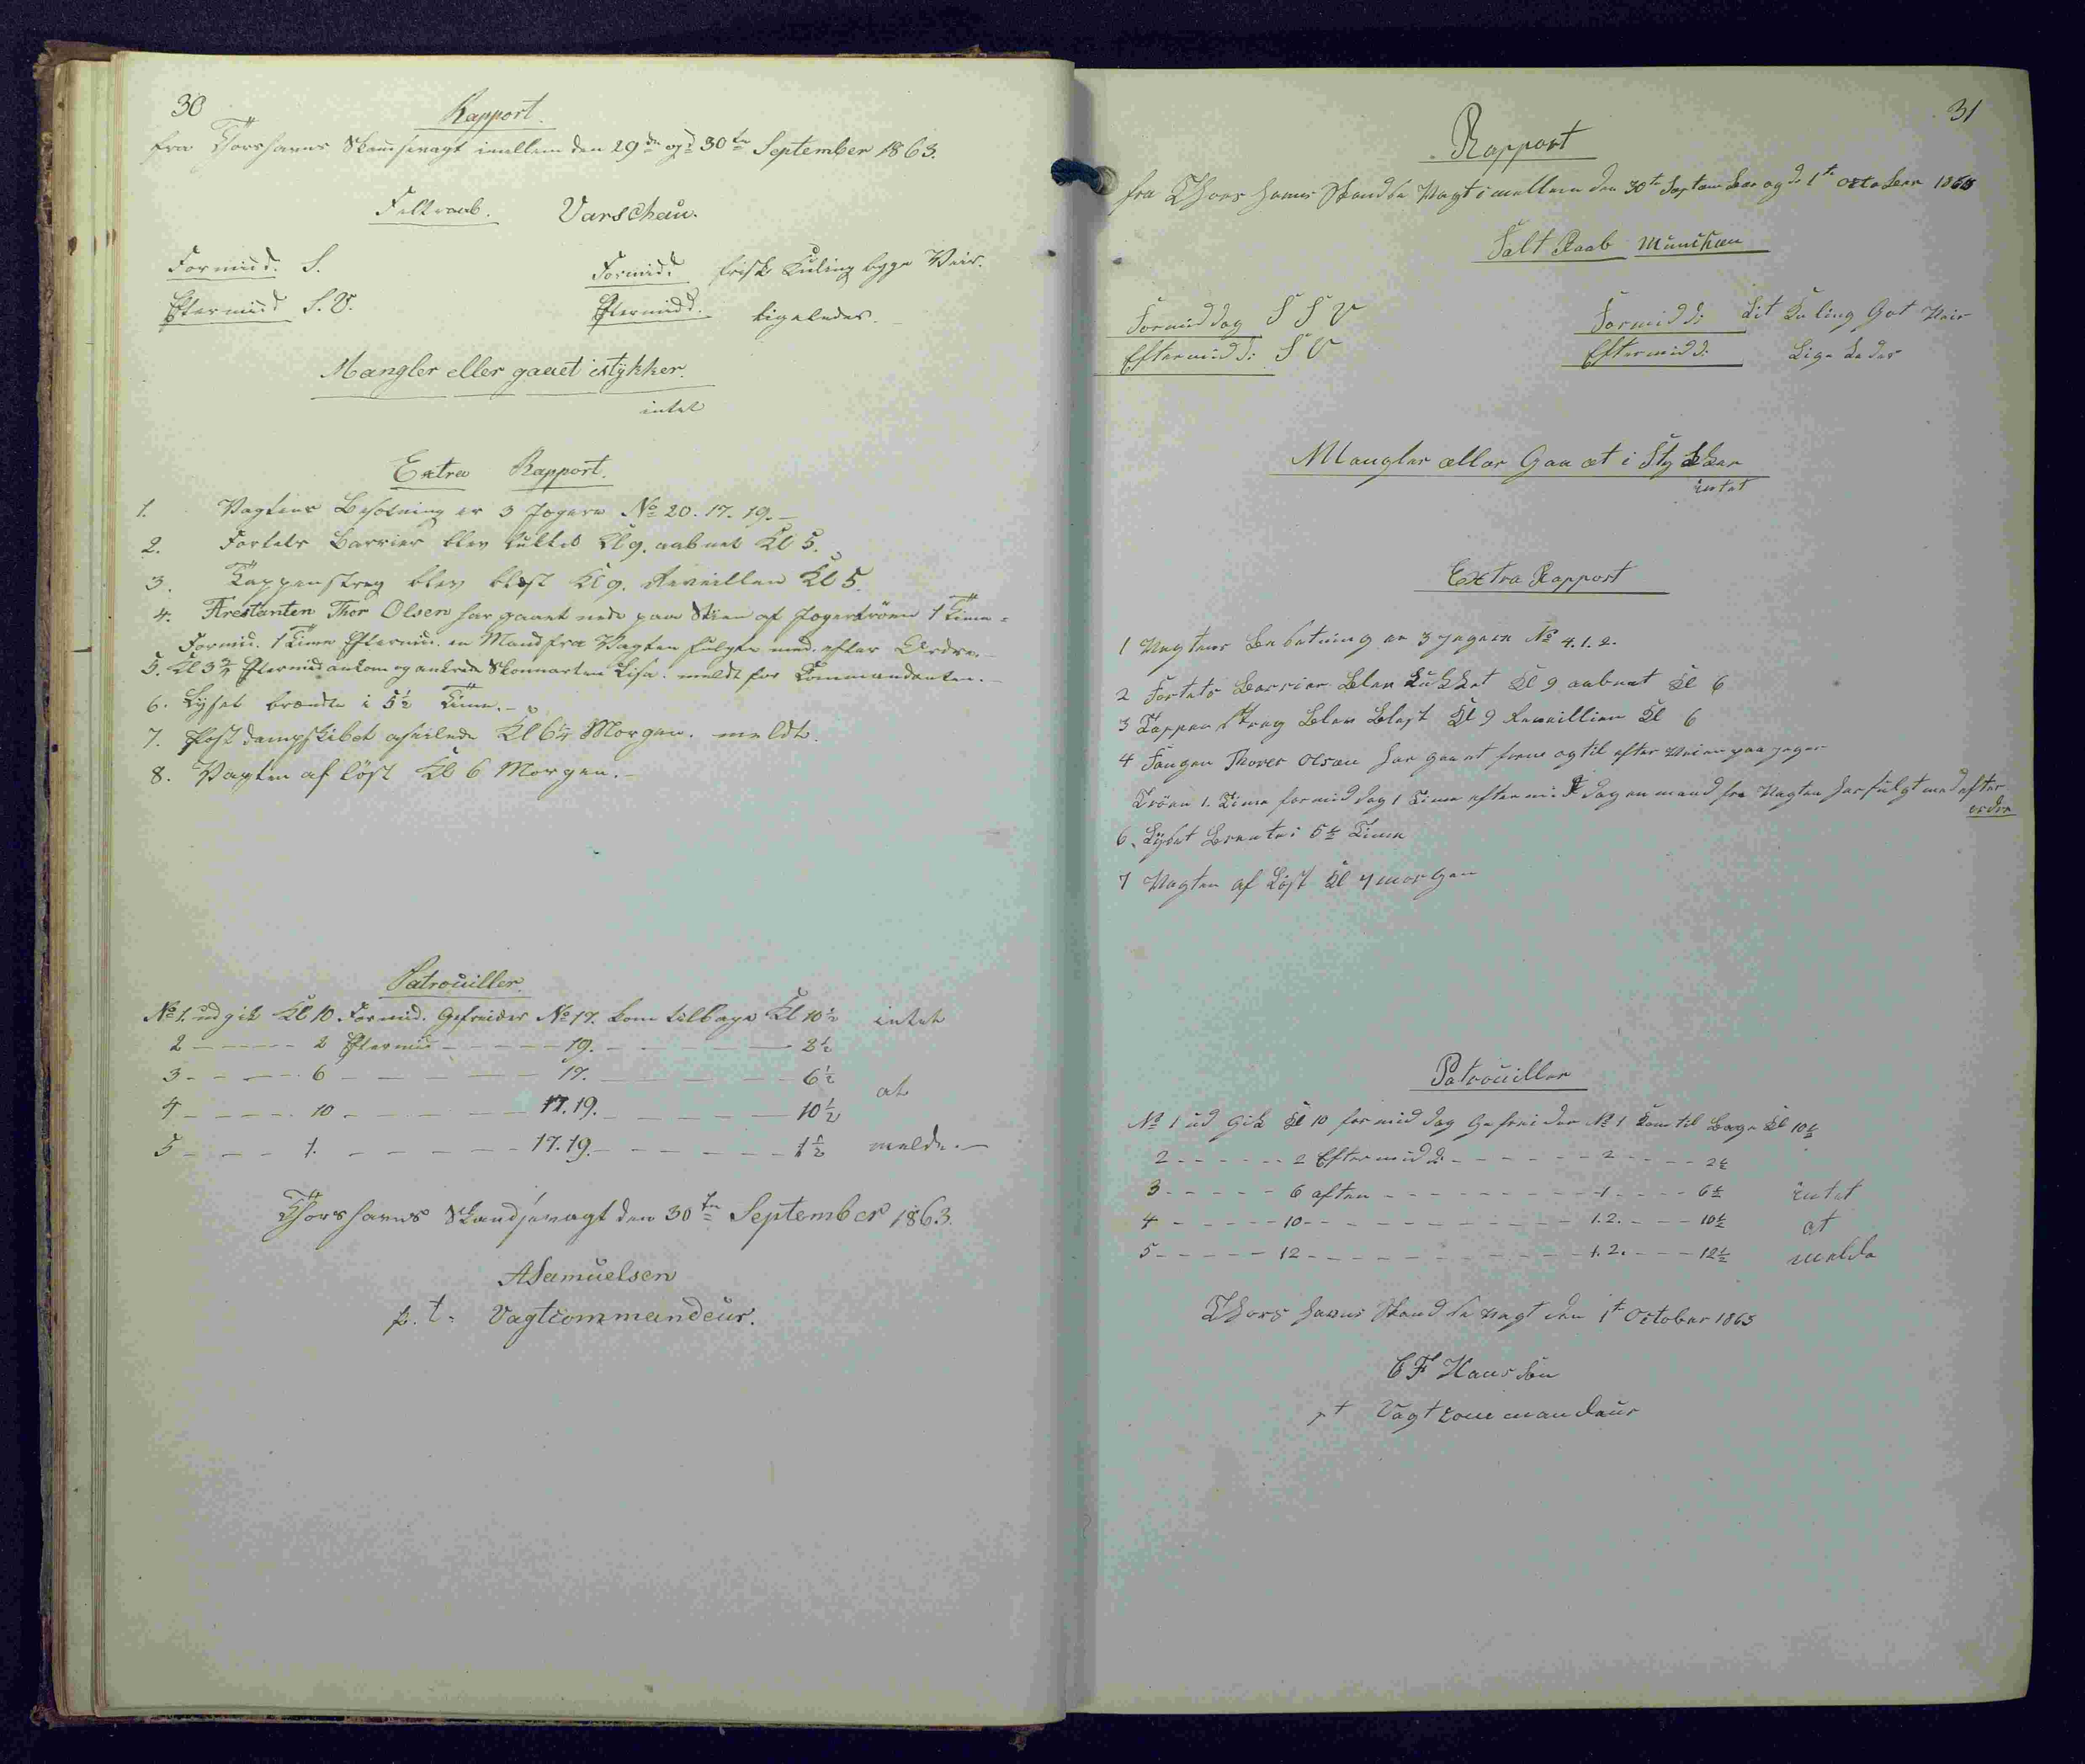 30
Rapport.
fra Torshavns Skandsevagt imellem den 29de og d 30te September 1863.
Feltraab. Varschau.
Formid. S. Formid. frisk Kuling bygge Veir.
Eftermid S.V. Eftermidd. ligeledes.
Mangler eller gaaet istykker.
intet
Extra Rapport.
1. Vagtens Besætning er 3 Jægere No 20. 17. 19.
2. Fortets Barrier blev lukket Kl 9. aabnet Kl 5.
3. Tappenstreg blev blæst Kl 9. Reveillen Kl 5.
4. Arestanten Thor Olsen har gaaet nede paa Veien af Jægertrøen 1 Time
Formid. 1 Time Eftermid. en Mand fra Vagten fulgte med efter Ordre.
5. Kl 3 Eftermid ankom og ankrede Skonnerten Lisa. meldt for Commandanten.
6. Lyset brændte i 5½ Time.
7. Post dampskibet afseilede Kl 6¼ Morgen. meldt.
8. Vagten af löst Kl 6 Morgen.
Patrouiller.
No 1. ud gik Kl 10 Formid. Gefreider No 17. kom tilbage Kl 10½ intet
2 - - - - 2 Eftermid - - - - 19. - - - - 2½
3 - - - - 6 - - - - 17. - - - - 6½
at
4 - - - - 10 - - - - 17. 19. - - - - 10½
5 - - - - 1. - - - - 17. 19. - - - - 1½ melde.
Thorshavns Skandsevagt den 30te September 1863.
ASamuelsen
p. t. Vagtcommandeur.
31
Rapport
fra Thors havns Skandse Vagt i mellem den 30te September og d 1te October 1863
Falt Raab Munchen
Formiddag S S V Formidd: Lit Kuling Got Veir
Eftermidd: S V Eftermidd: Lige Ledes
Mangler eller Gaa et i Stykker
intet
Extra Rapport
1 Vagtens Besetning er 3 Jægere No 4. 1. 2.
2 Fortets Barrier Blev Lukket Kl 9 aabent Kl 6
3 Tappen Streg Blev Blest Kl 9 Reveillien Kl 6
4 Fangen Thorer Olsen har gaa et frem og til efter Veien paa jeger
Trøen 1. Time formid dag 1 Time eftermid dag en mand fra Vagten har fulgt med efter
ordre
6. Lyset Brente i 5½ Time
7 Vagten af Löst Kl 7 morgen
Patrouiller
No 1 ud Gik Kl 10 formid dag Gefreider No 1 kom til Bage Kl 10½
2 - - - - 2 Eftermidd - - - - 2 - - - - 2½
3 - - - - 6 aften - - - - 1 - - - - 6½ intet
4 - - - - 10 - - - - 1. 2. - - - - 10½ at
5 - - - - 12 - - - - 1. 2. - - - - 12½ melde
Thors havns Skandse vagt den 1te October 1863
C F Hansen
p t Vagtcommandeur